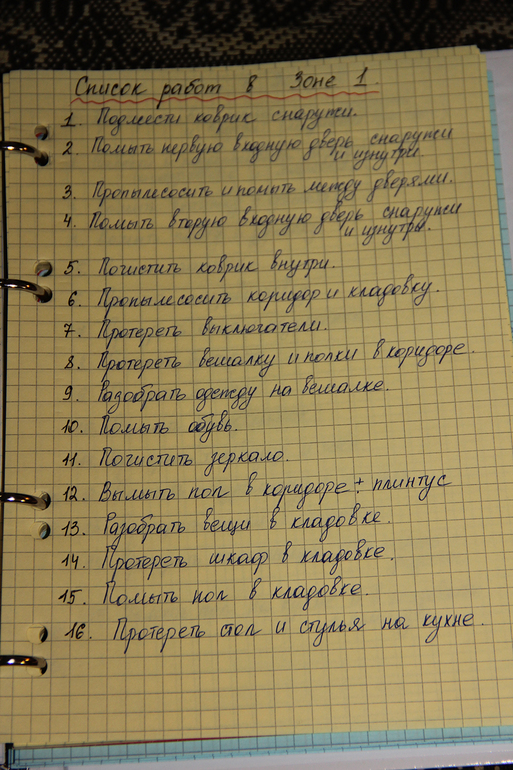 Список работ в Зоне 1.
1. Подмести коврик снаружи.
2. Помыть первую входную дверь снаружи
и изнутри.
3. Пропылесосить и помыть между дверями.
4. Помыть вторую входную дверь снаружи
и изнутри.
5. Почистить коврик внутри.
6. Пропылесосить коридор и кладовку.
7. Протереть выключатели.
8. Протереть вешалку и полки в коридоре.
9. Разобрать одежду на вешалке.
10. Помыть обувь.
11. Почистить зеркало.
12. Вымыть пол в коридоре + плинтус
13. Разобрать вещи в кладовке.
14. Протереть шкаф в кладовке.
15. Помыть пол в кладовке.
16. Протереть стол и стулья на кухне.